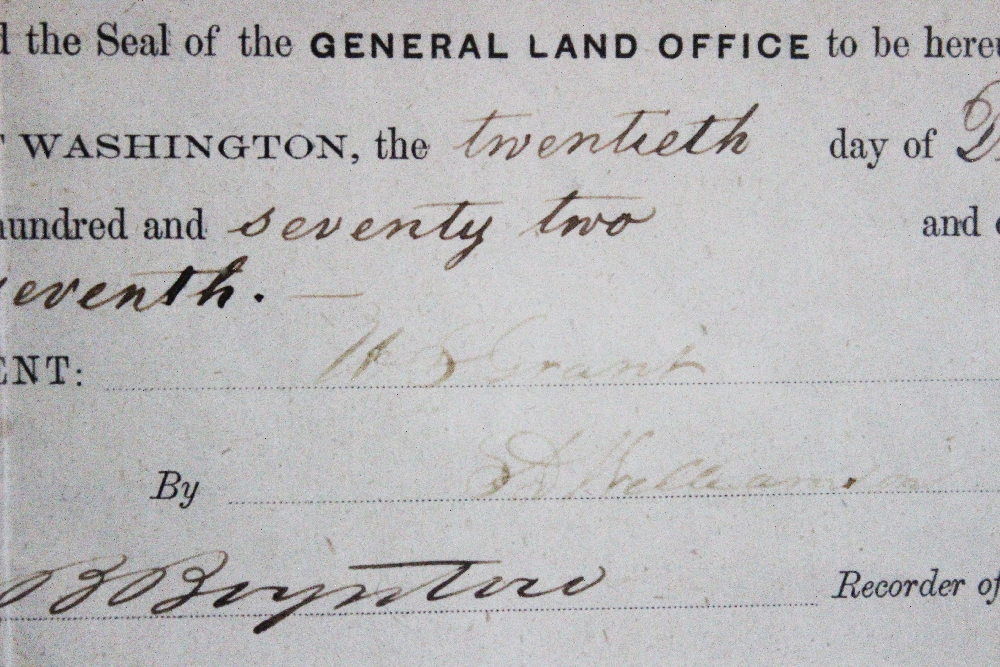 d the Seal of the GENERAL LAND OFFICE to be hereu
T WASHINGTON, the twentieth day of D
hundred and seventy two and
seventh.
ENT: U S Grant
By D Williamson
B Boynton Recorder of